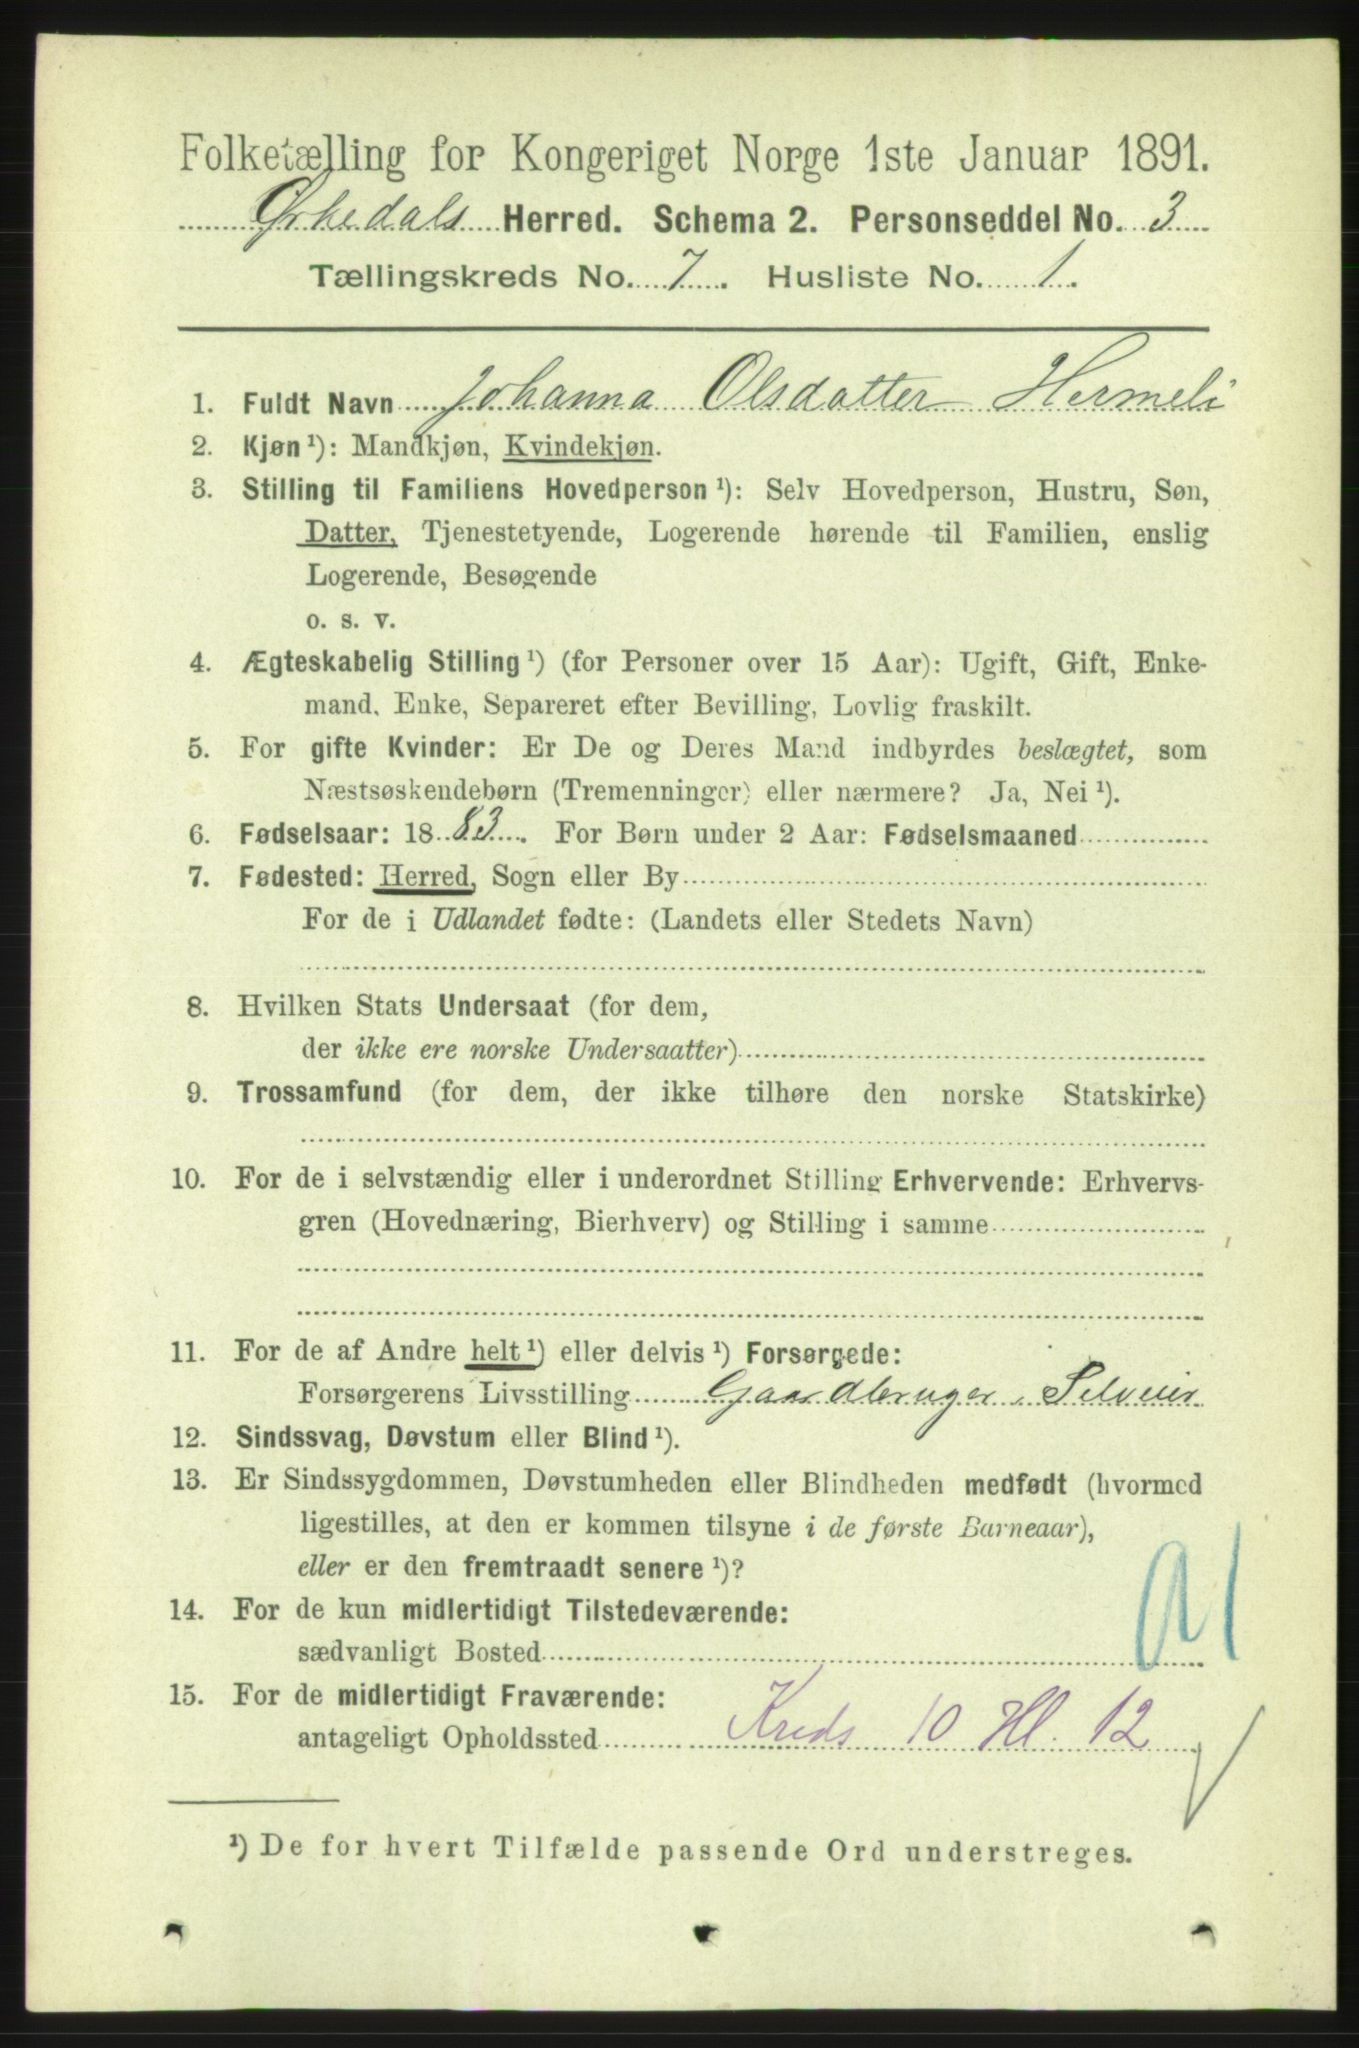 Folketælling for Kongeriget Norge 1ste Januar 1891.
Ørkedals Herred. Schema 2. Personseddel No. 3
Tællingskreds No. 7. Husliste No. 1.
1. Fuldt Navn Johanna Olsdatter Hermeli
2. Kjøn ¹): Mandkjøn, Kvindekjøn.
3. Stilling til Familiens Hovedperson ¹): Selv Hovedperson, Hustru, Søn,
Datter, Tjenestetyende, Logerende hørende til Familien, enslig
Logerende, Besøgende
o. s. v.
4. Ægteskabelig Stilling ¹) (for Personer over 15 Aar): Ugift, Gift, Enke-
mand, Enke, Separeret efter Bevilling, Lovlig fraskilt.
5. For gifte Kvinder: Er De og Deres Mand indbyrdes beslægtet, som
Næstsøskendebørn (Tremenninger) eller nærmere? Ja, Nei ¹).
6. Fødselsaar: 1883. For Børn under 2 Aar: Fødselsmaaned
7. Fødested: Herred, Sogn eller By
For de i Udlandet fødte: (Landets eller Stedets Navn)
8. Hvilken Stats Undersaat (for dem,
der ikke ere norske Undersaatter)
9. Trossamfund (for dem, der ikke tilhøre den norske Statskirke)
10. For de i selvstændig eller i underordnet Stilling Erhvervende: Erhvervs-
gren (Hovednæring, Bierhverv) og Stilling i samme
11. For de af Andre helt ¹) eller delvis ¹) Forsørgede:
Forsørgerens Livsstilling Gaardbruger, Selveier
12. Sindssvag, Døvstum eller Blind ¹).
13. Er Sindssygdommen, Døvstumheden eller Blindheden medfødt (hvormed
ligestilles, at den er kommen tilsyne i de første Barneaar),
eller er den fremtraadt senere ¹)?
14. For de kun midlertidigt Tilstedeværende:
sædvanligt Bosted
15. For de midlertidigt Fraværende:
antageligt Opholdssted Kreds 10 Hl. 12
¹) De for hvert Tilfælde passende Ord understreges.